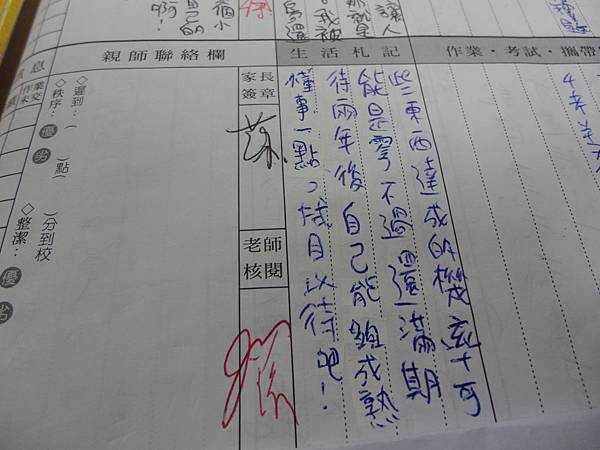 作業・考試・攜帶
生活札記
讓人
那就是
些東西達成的機率可
能是零不過還滿期
待兩年後自己能夠成熟
懂事一點，拭目以待吧！
家長
簽章
老師
核閱
親師聯絡欄
個小
自己的
啊！
◇遲到：(　)點(　)分到校
◇秩序：優 劣　◇整潔：優 劣
息
作業
未交